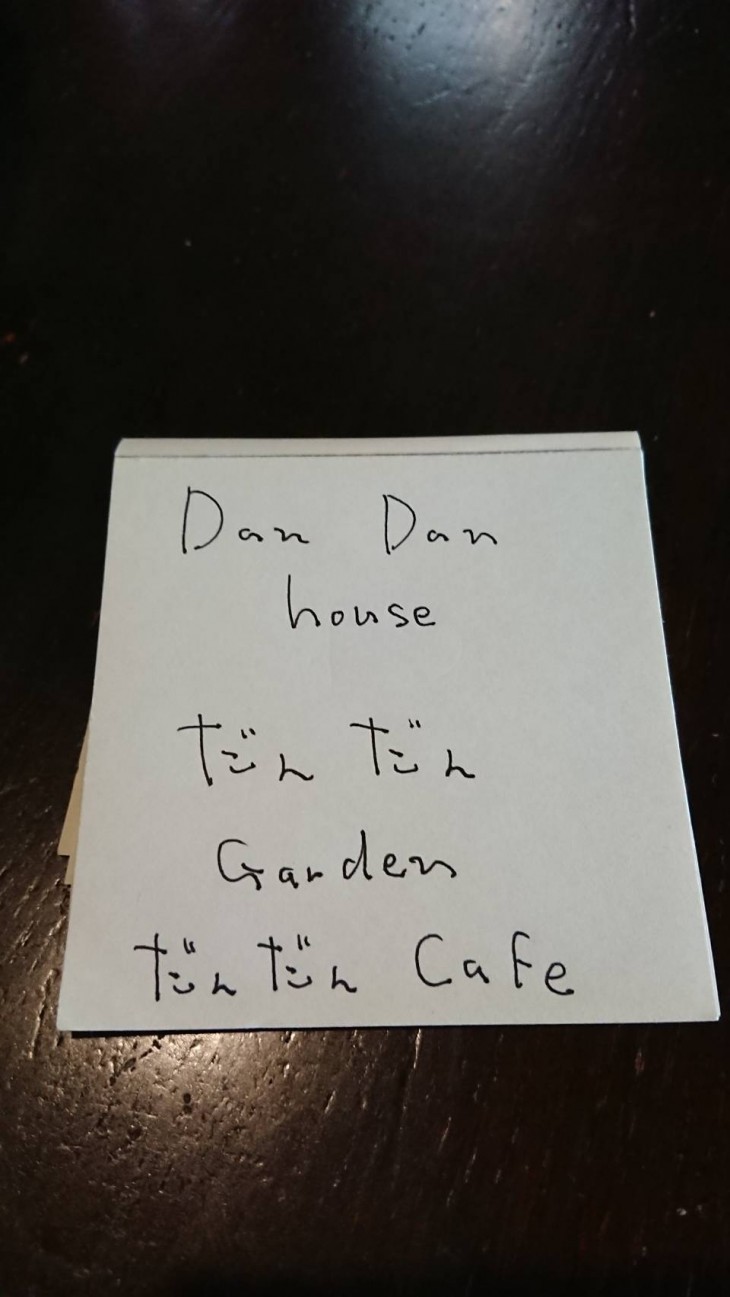 Dan Dan
house
だん だん
Garden
だんだん Cafe